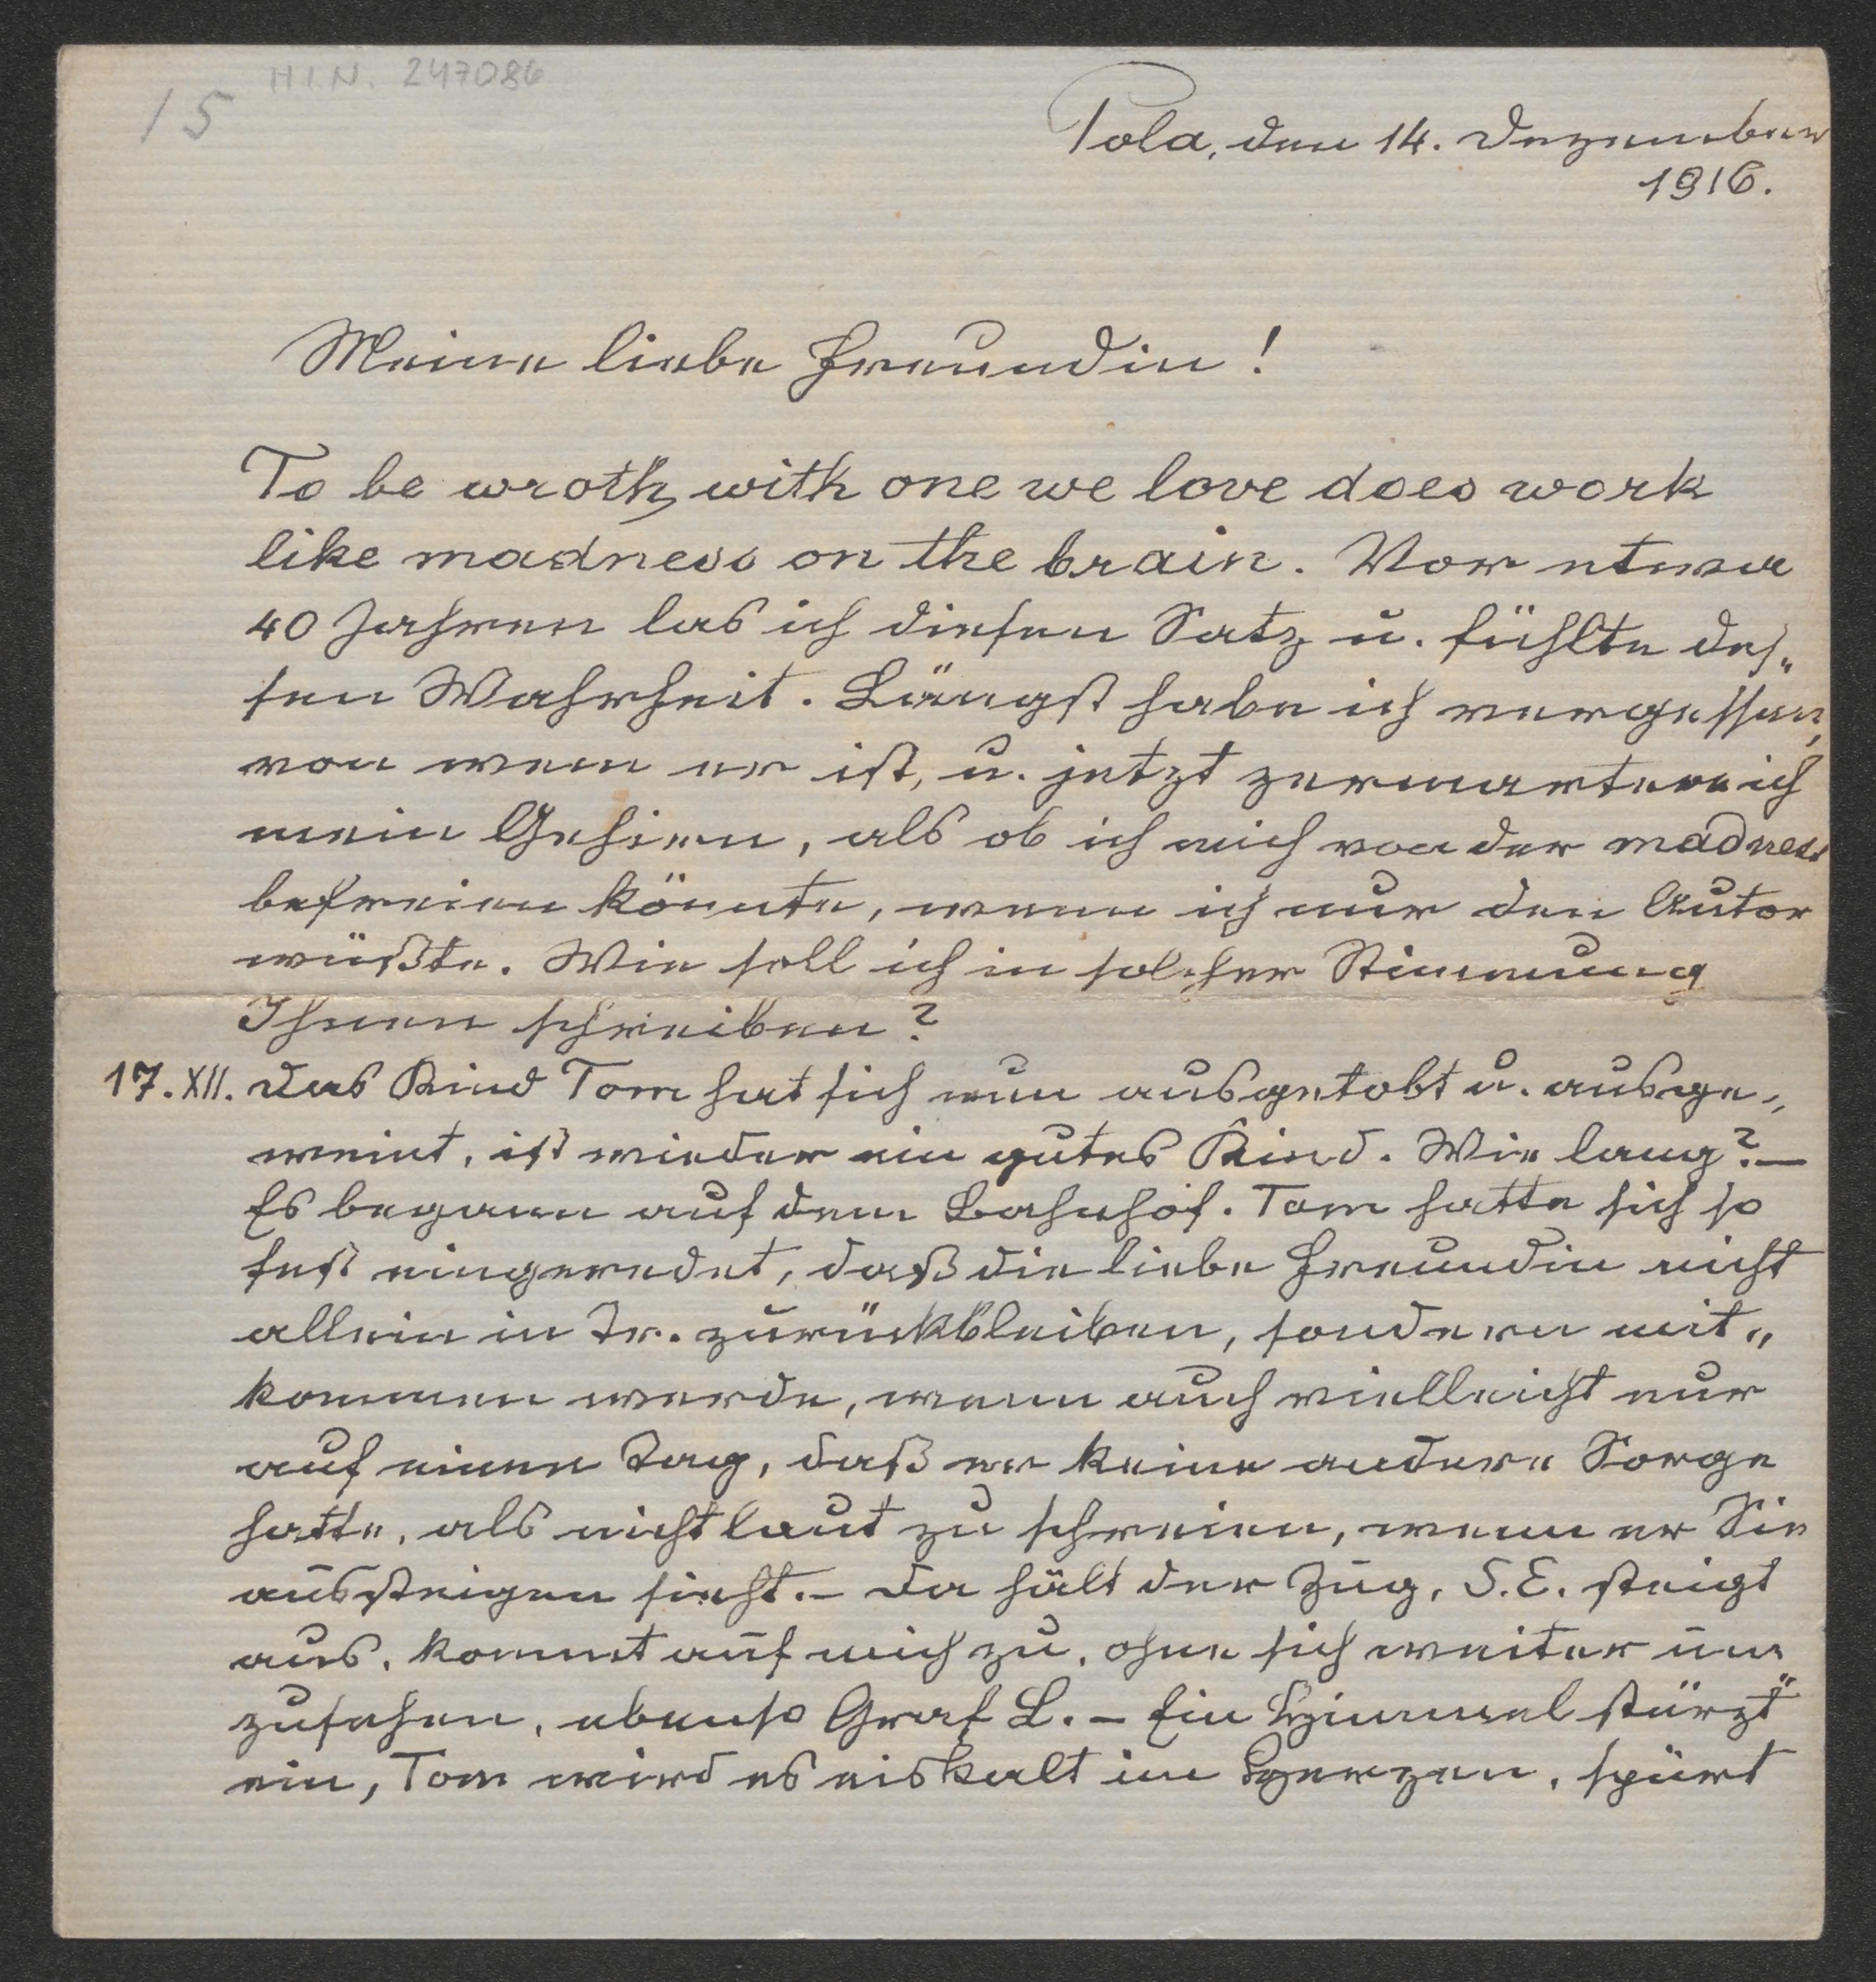 H.I.N. 247086
15
Pola, den 14. Dezember
1916.
Meine liebe Freundin!
To be wroth with one we love does work
like madness on the brain. Vor etwa
40 Jahren las ich diesen Satz u. fühlte des„
sen Wahrheit. Längst habe ich vergessen,
von wem er ist, u. jetzt zermartere ich
mein Gehirn, als ob ich mich von der madness
befreien könnte, wenn ich nur den Autor
wüßte. Wie soll ich in solcher Stimmung
Ihnen schreiben?
17. XII. Das Kind Tom hat sich nun ausgetobt u. ausge„
weint, ist wieder ein gutes Kind. Wie lang? –
Es begann auf dem Bahnhof. Tom hatte sich so
fest eingeredet, daß die liebe Freundin nicht
allein in Tr. zurückbleiben, sondern mit„
kommen werde, wenn auch vielleicht nur
auf einen Tag, daß er keine andere Sorge
hatte, als nicht laut zu schreien, wenn er Sie
aussteigen sieht. – Da hält der Zug, S.E. steigt
aus, kommt auf mich zu, ohne sich weiter um
zusehen, ebenso Graf L. – Ein Himmel stürzt
ein, Tom wird es eiskalt im Herzen, spürt